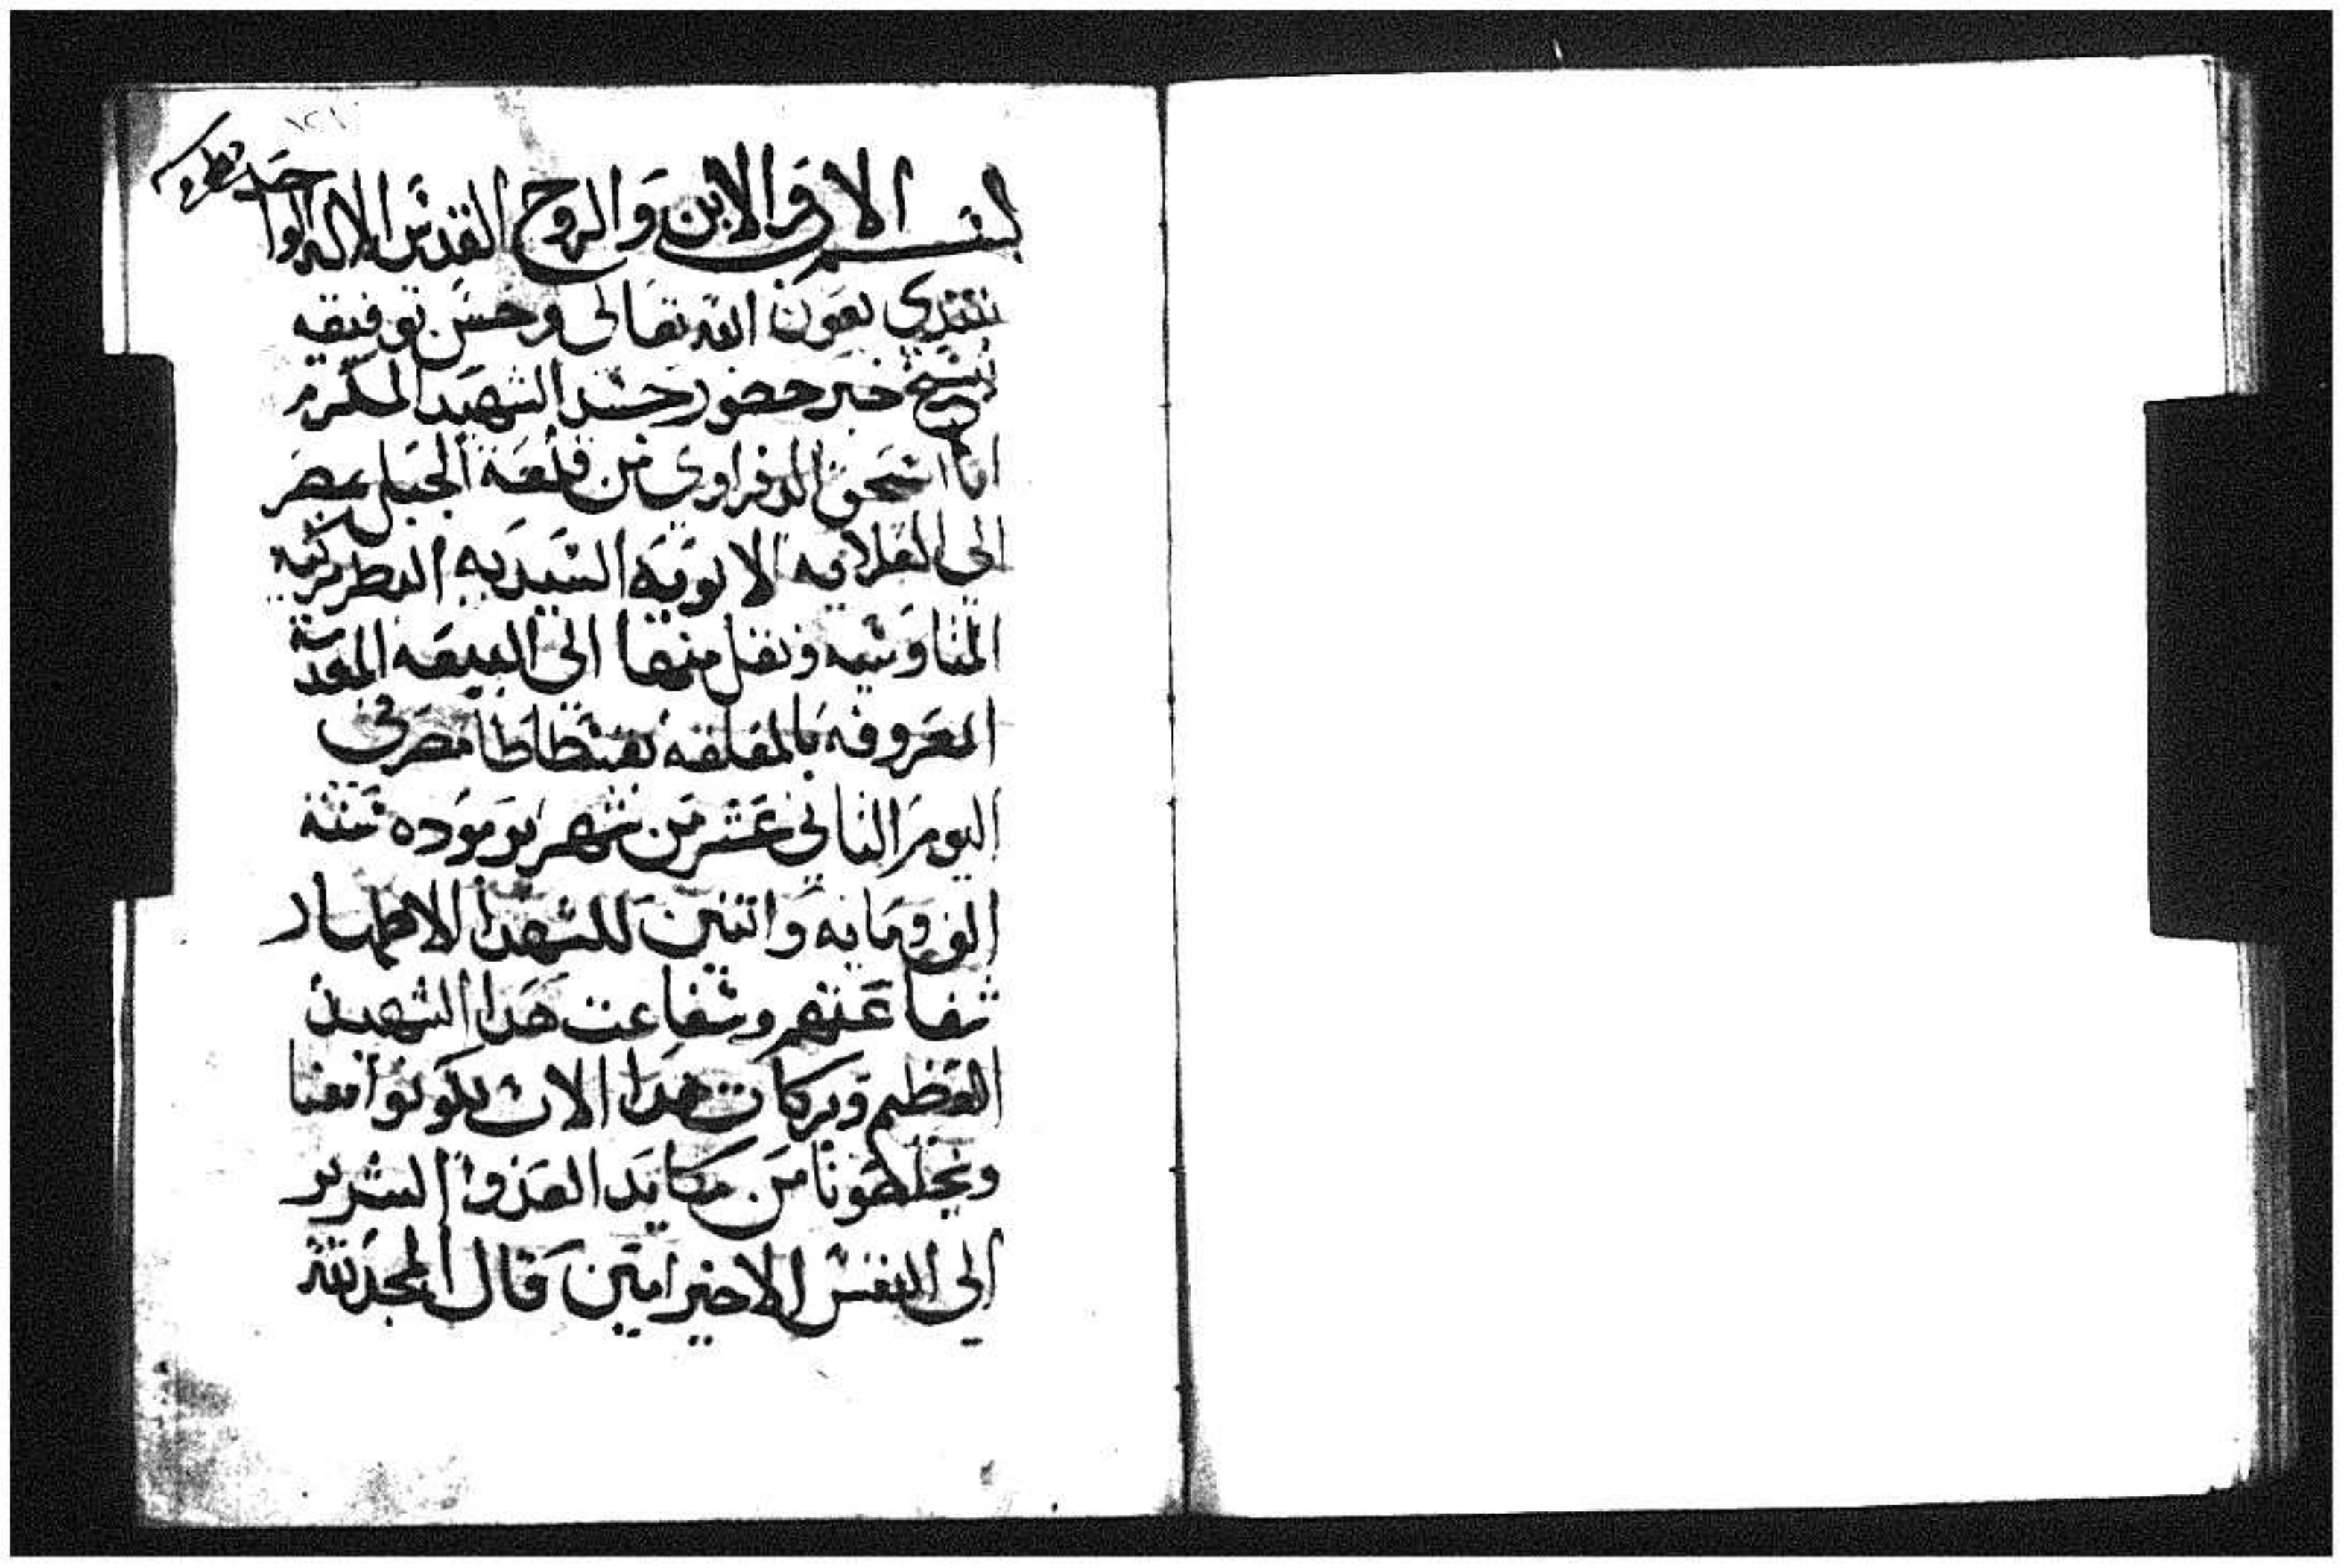 ١٢١
بسم الاب والابن والروح القدس الاله الواحد
نبتدي بعون الله تعالى وحسن توفيقه
نسخ خبر حضور جسد الشهيد المكرم
ابا اسحق الدفراوى من قلعة الجبل بمصر
الى القلايه الابويه السيديه البطريركيه
المناوشيه ونقل منها الى البيعه المقدسة
المعروفه بالمعلقه بفسطاطا مصر في
اليوم الثاني عشر من شهر برموده سنة
الف ومايه واتنين للشهدا الاطهار
شفاعتهم وشفاعت هدا الشهيد
العظيم وبركات هدا الاب يكونوا معنا
ويخلصونا من مكايد العدوا الشرير
الى النفس الاخير امين قال المجد لله